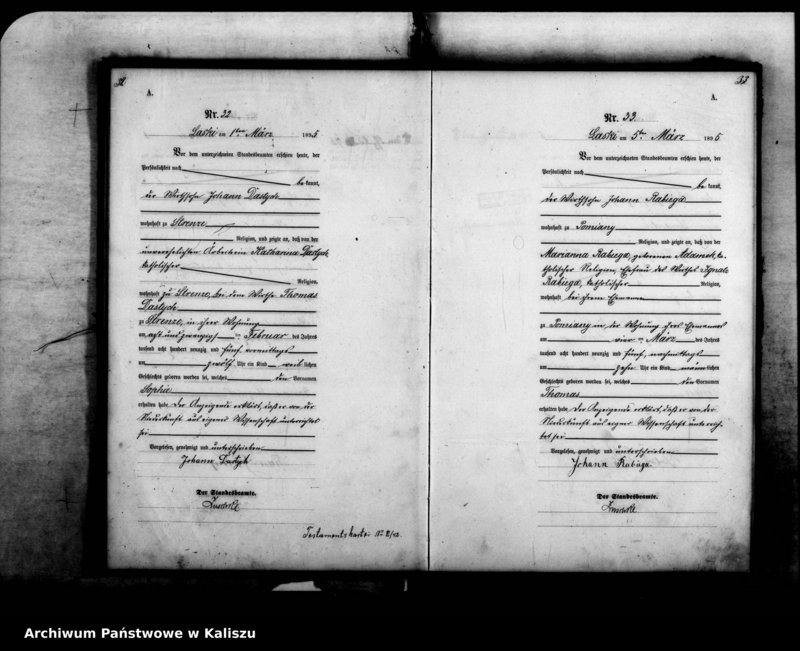 32
A.
Nr. 32
Laski am 1ten März 1895
Vor dem unterzeichneten Standesbeamten erschien heute, der
Persönlichkeit nach
be kannt,
der Wirthssohn Johann Dastych
wohnhaft zu Strenze
Religion, und zeigte an, daß von der
unverehelichten Arbeiterin Katharina Dastych
katholischer
Religion,
wohnhaft zu Strenze, bei dem Wirthe Thomas
Dastych
zu Strenze, in ihrer Wohnung
am acht und zwanzigsten Februar des Jahres
tausend acht hundert neunzig und fünf vormittags
um zwölf Uhr ein Kind weiblichen
Geschlechts geboren worden sei, welches den Vornamen
Sophie
erhalten habe. Der Anzeigende erklärt, daß er von der
Niederkunft aus eigener Wissenschaft unterrichtet
sei
Vorgelesen, genehmigt und unterschrieben
Johann Dastych
Der Standesbeamte.
Testamentskartei
33
A.
Nr. 33.
Laski am 5ten März 1895
Vor dem unterzeichneten Standesbeamten erschien heute, der
Persönlichkeit nach
be kannt,
der Wirthssohn Johann Rabiega
wohnhaft zu Pomiany
Religion, und zeigte an, daß von der
Marianna Rabiega, geborenen Adamek, ka-
tholischer Religion, Ehefrau des Wirths Ignatz
Rabiega, katholischer Religion,
wohnhaft bei ihrem Ehemanne
zu Pomiany in der Wohnung ihres Ehemannes
am vier ten März des Jahres
tausend acht hundert neunzig und fünf, nachmittags
um zehn Uhr ein Kind männlichen
Geschlechts geboren worden sei, welches den Vornamen
Thomas
erhalten habe. Der Anzeigende erklärt, daß er von der
Niederkunft aus eigener Wissenschaft unterrich-
tet sei
Vorgelesen, genehmigt und unterschrieben
Johann Rabiega
Der Standesbeamte.
Archiwum Państwowe w Kaliszu